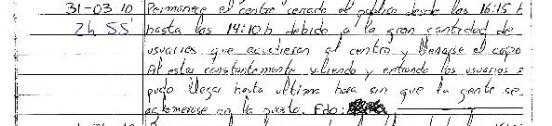 31-03 10 Permanece el centro cerrado al publico desde las 16:15 h
2h 55' hasta las 19:10 h debido a la gran cantidad de
usuarios que acudieran al centro y llenarse el cupo
Al estar constantemente saliendo y entrando los usuarios s
pudo llegar hasta ultima hora sin que la gente se
aglomerase en la puerta. Fdo: